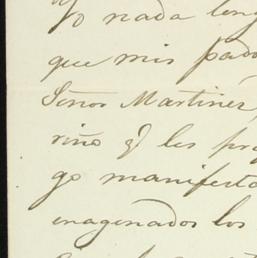 Yo nada teng
que mis pad
Señor Martinez,
riño q les pro
go manifesta
enagenados los